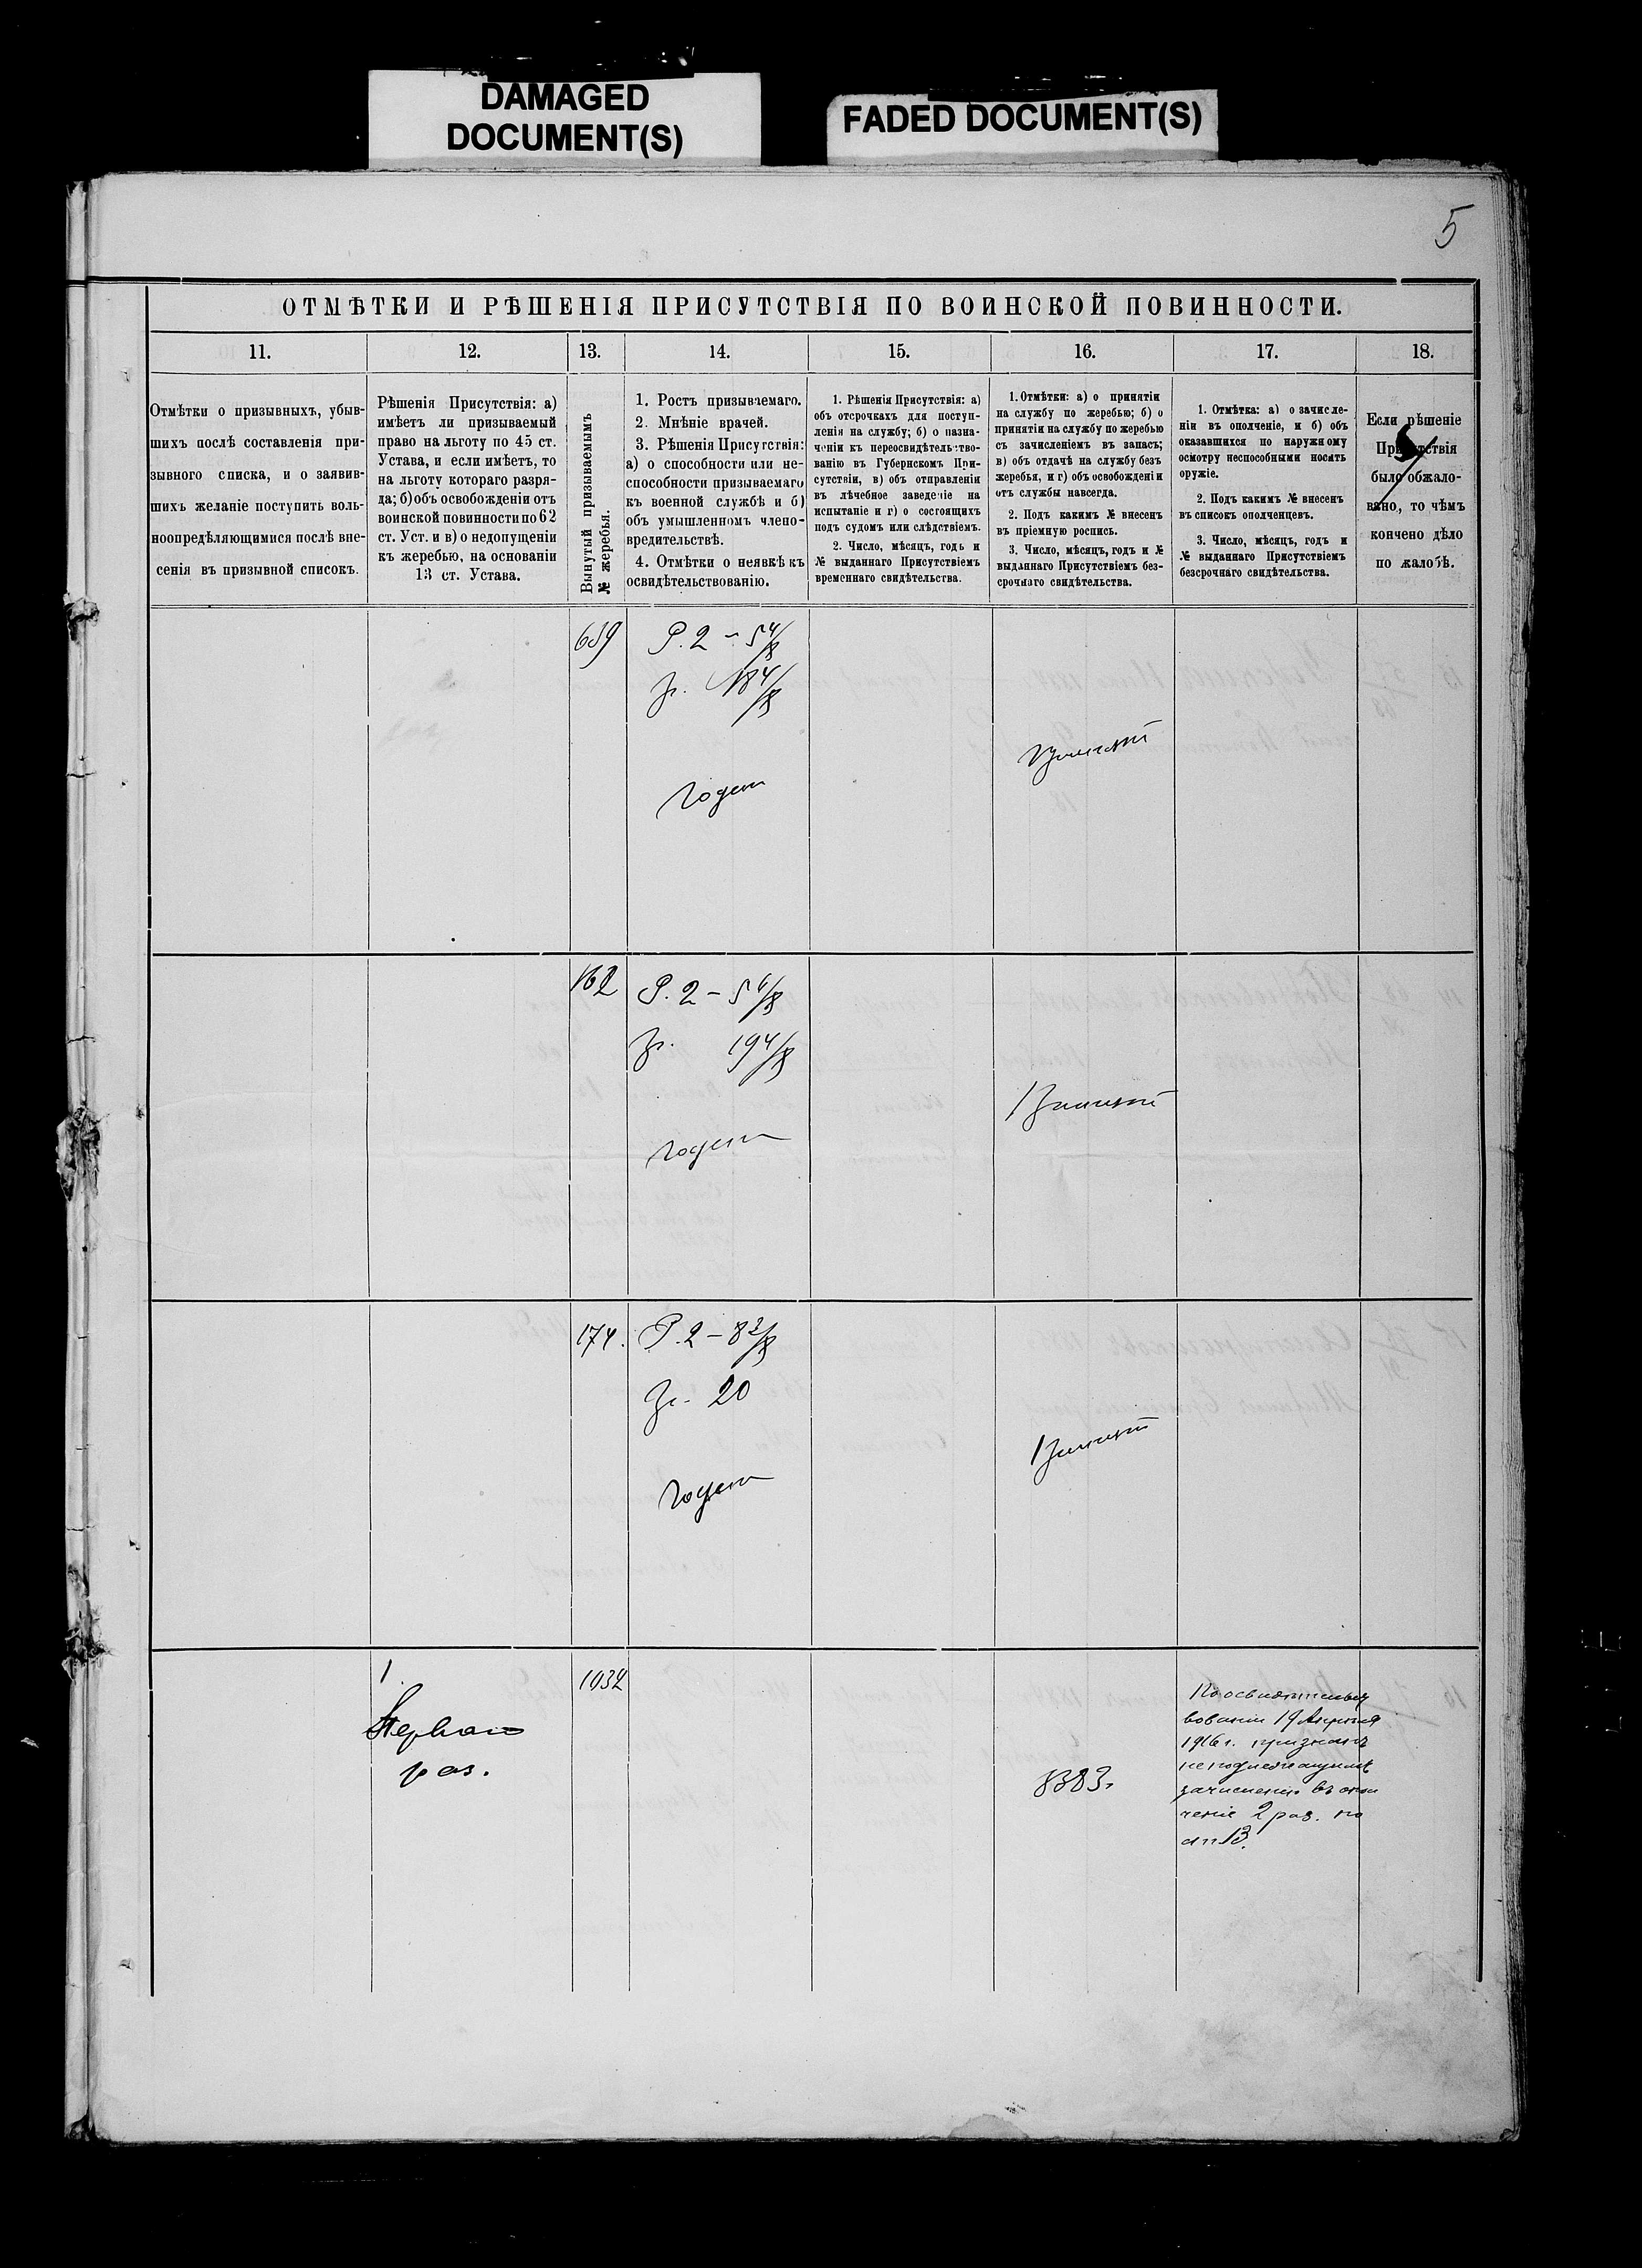 DAMAGED
DOCUMENT(S)
FADED DOCUMENT(S)
5
ОТМѢТКИ И РѢШЕНІЯ ПРИСУТСТВІЯ ПО ВОИНСКОЙ ПОВИННОСТИ.
11.
12.
13.
14.
15.
16.
17.
18.
Отмѣтки о призывныхъ, убыв-
шихъ послѣ составленія при-
зывного списка, и о заявив-
шихъ желаніе поступить воль-
ноопредѣляющимися послѣ вне-
сенія въ призывной списокъ.
Рѣшенія Присутствія: а)
имѣетъ ли призываемый
право на льготу по 45 ст.
Устава, и если имѣетъ, то
на льготу котораго разря-
да; б) объ освобожденіи отъ
воинской повинности по 62
ст. Уст. и в) о недопущеніи
къ жеребью, на основаніи
13 ст. Устава.
Вынутый призываемымъ
№ жеребья.
1. Ростъ призываемаго.
2. Мнѣніе врачей.
3. Рѣшенія Присутствія:
а) о способности или не-
способности призываемаго
къ военной службѣ и б)
объ умышленномъ члено-
вредительствѣ.
4. Отмѣтки о неявкѣ къ
освидѣтельствованію.
1. Рѣшенія Присутствія: а)
объ отсрочкахъ для поступ-
ленія на службу; б) о назна-
ченіи къ переосвидѣтельство-
ванію въ Губернскомъ При-
сутствіи, в) объ отправленіи
въ лѣчебное заведеніе на
испытаніе и г) о состоящихъ
подъ судомъ или слѣдствіемъ.
2. Число, мѣсяцъ, годъ и
№ выданнаго Присутствіемъ
временнаго свидѣтельства.
1. Отмѣтки: а) о принятіи
на службу по жеребью; б) о
принятіи на службу по жеребью
съ зачисленіемъ въ запасъ;
в) объ отдачѣ на службу безъ
жеребья, и г) объ освобожденіи
отъ службы навсегда.
2. Подъ какимъ № внесенъ
въ пріемную роспись.
3. Число, мѣсяцъ, годъ и №
выданнаго Присутствіемъ без-
срочнаго свидѣтельства.
1. Отмѣтка: а) о зачисле-
ніи въ ополченіе, и б) объ
оказавшихся по наружному
осмотру неспособными носить
оружіе.
2. Подъ какимъ № внесенъ
въ списокъ ополченцевъ.
3. Число, мѣсяцъ, годъ и
№ выданнаго Присутствіемъ
безсрочнаго свидѣтельства.
Если рѣшеніе
Присутствія
было обжало-
вано, то чѣмъ
кончено дѣло
по жалобѣ.
Р. 2 – 5 4/8
Годенъ
Принятъ
162
Р. 2 – 5 6/8
19 4/8
годенъ
Принятъ
174.
Р. 2 – 8 3/8
20
Годенъ
Принятъ
1
раз.
1032
8383.
По освидѣтельст
вованіи 19 Апрѣля
1916 г. признанъ
неподлежащимъ
зачисленію въ опол
ченіе 2 раз. по